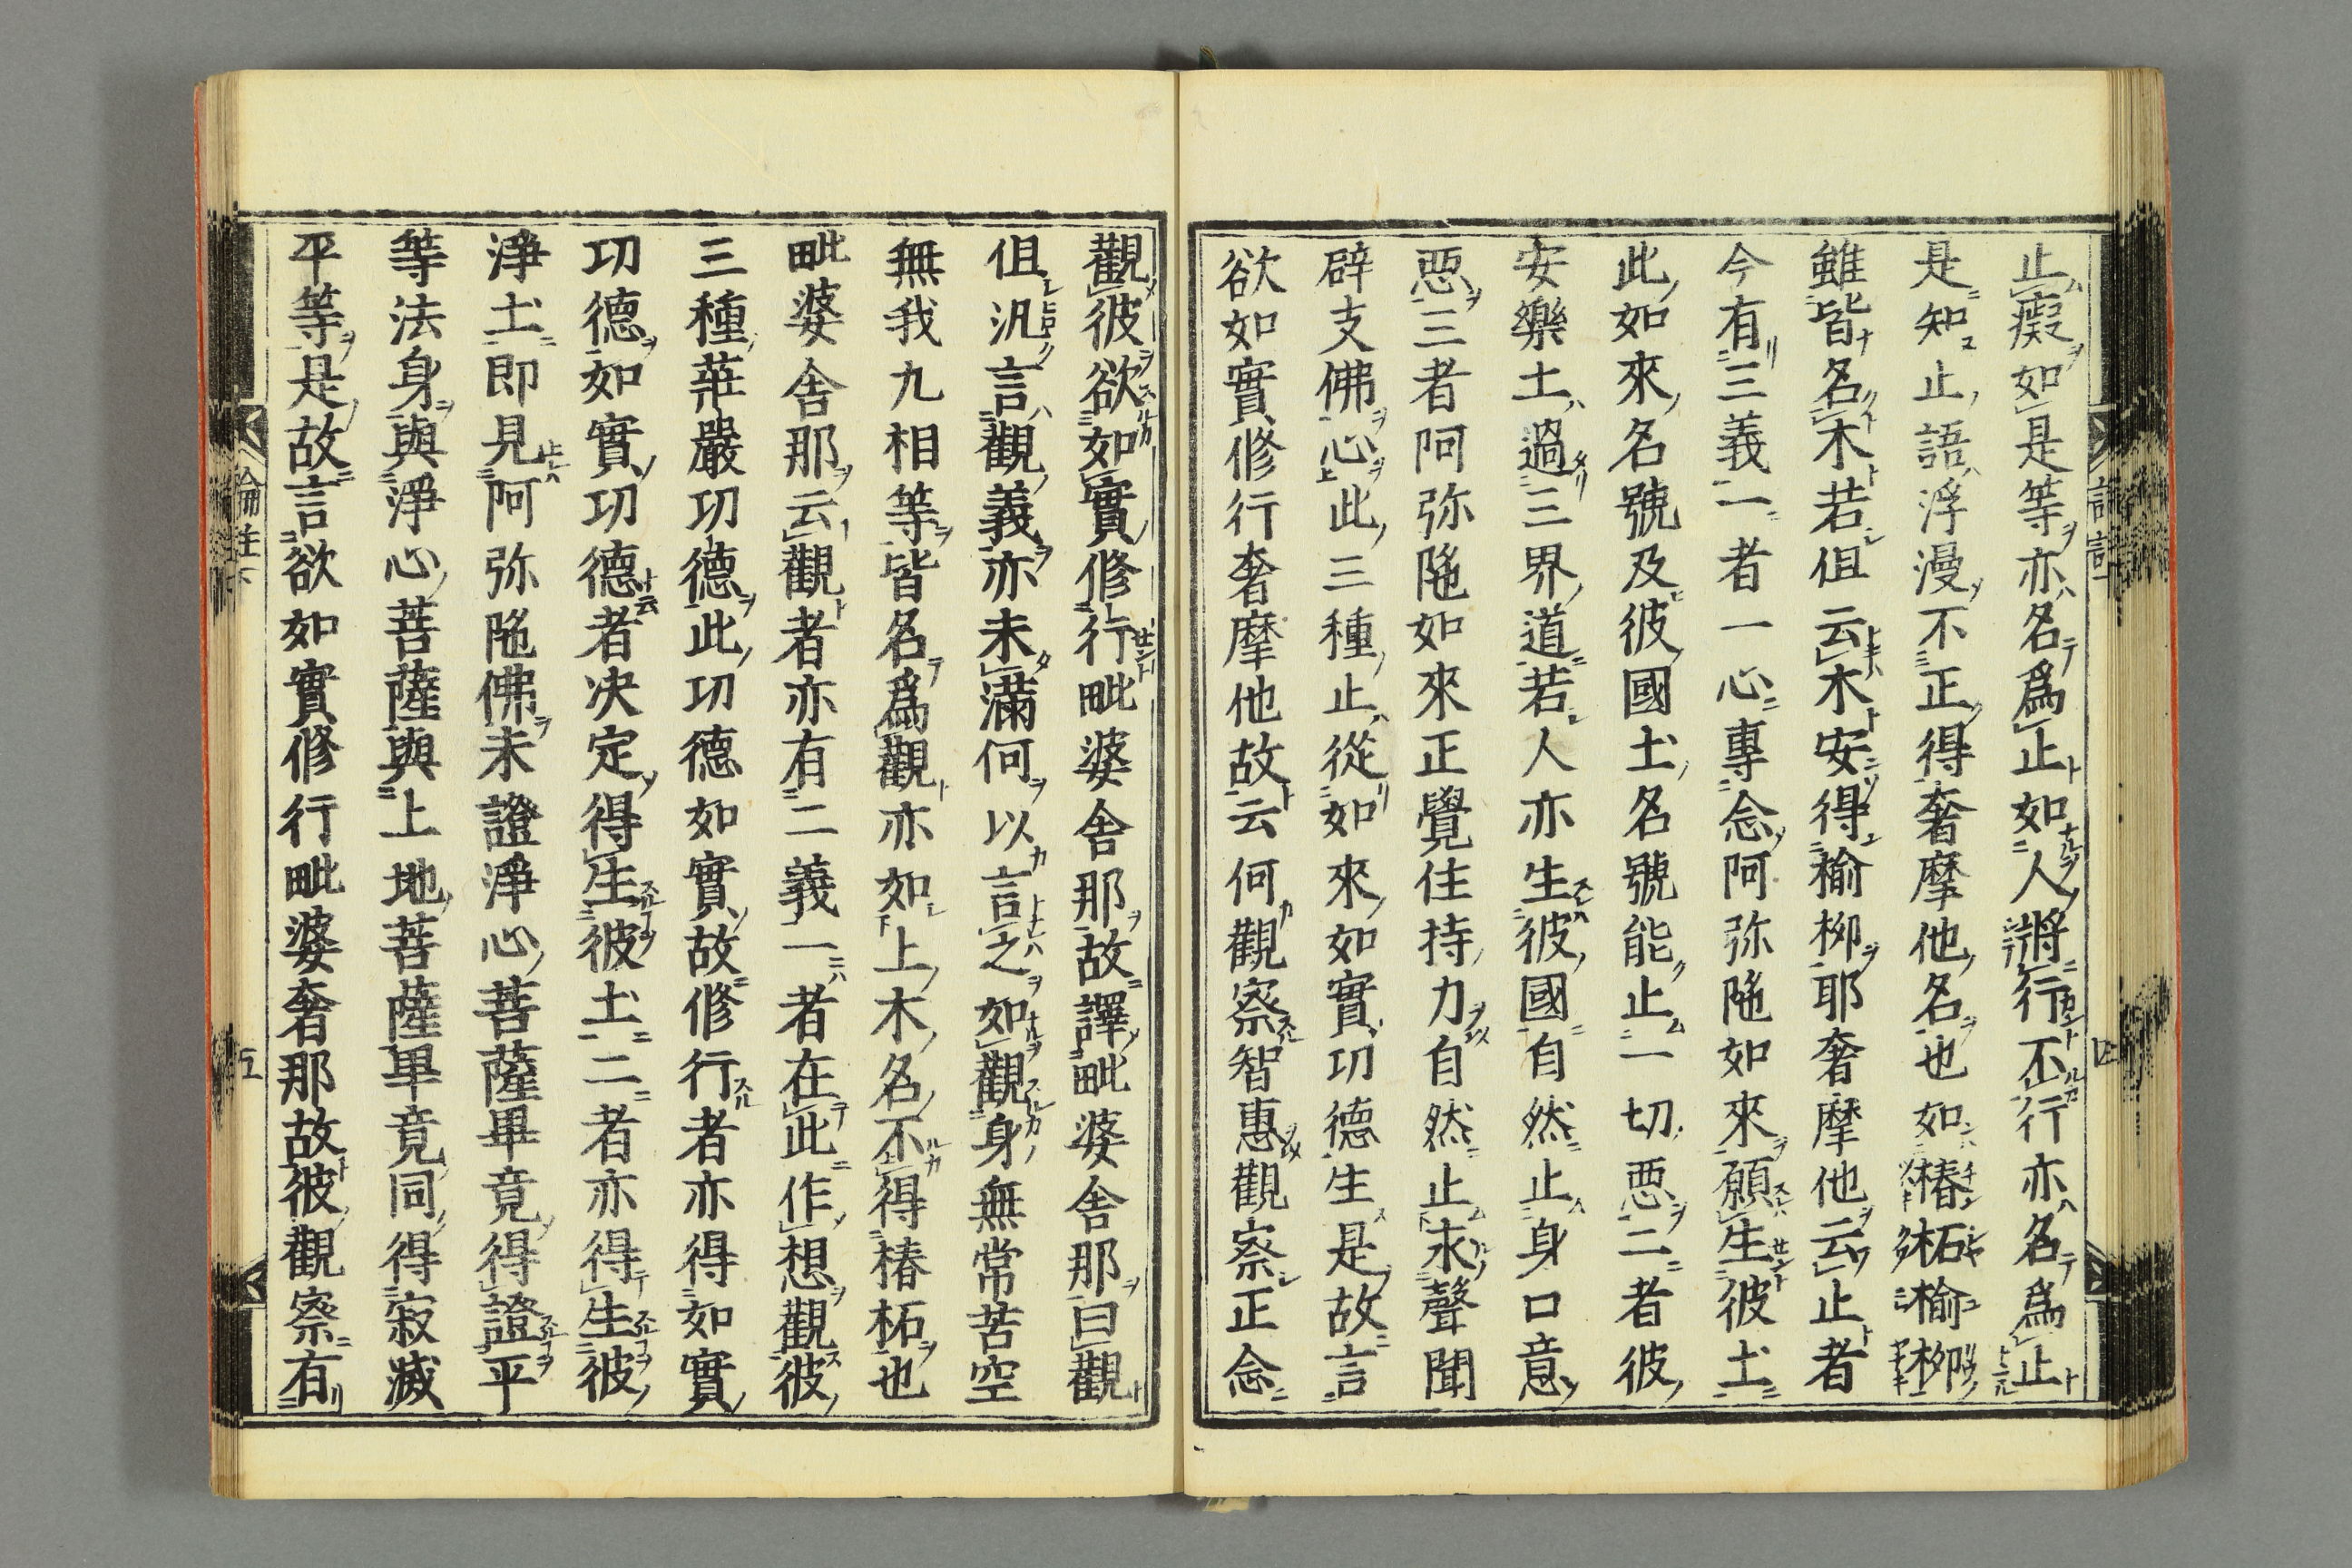 止癡如是等亦名爲止如人將行不行亦名爲止
是知止語浮漫不正得奢摩他名也如椿柘榆柳
雖皆名木若但云木安得榆柳耶奢摩他云止者
今有三義一者一心專念阿弥陁如來願生彼土
此如來名號及彼國土名號能止一切惡二者彼
安樂土過三界道若人亦生彼國自然止身口意
惡三者阿弥陁如來正覺住持力自然止求聲聞
辟支佛心此三種止從如來如實功德生是故言
欲如實修行奢摩他故云何觀察智惠觀察正念
觀彼欲如實修行毗婆舍那故譯毗婆舍那曰觀
但汎言觀義亦未滿何以言之如觀身無常苦空
無我九相等皆名爲觀亦如上木名不得椿柘也
毗婆舍那云觀者亦有二義一者在此作想觀彼
三種莊嚴功德此功德如實故修行者亦得如實
功德如實功德者决定得生彼土二者亦得生彼
淨土即見阿弥陁佛未證淨心菩薩畢竟得證平
等法身與淨心菩薩與上地菩薩畢竟同得寂滅
平等是故言欲如實修行毗婆奢那故彼觀察有
論註下
五